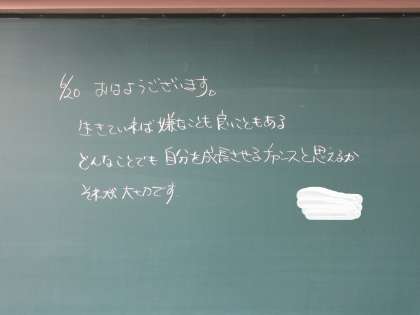 6/20 おはようございます。
生きていれば嫌なことも良いこともある
どんなことでも自分を成長させるチャンスと思えるか
それが大切です